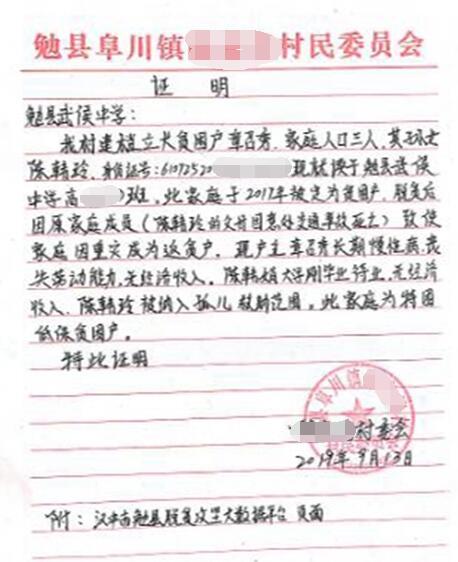 勉县阜川镇 村民委员会
证 明
勉县武侯中学：
我村建档立卡贫困户章召秀，家庭人口三人，其子女
陈韩玲，身份证号：61072520 现就读于勉县武侯
中学高 班，此家庭于2017年被定为贫困户，脱贫后
因原家庭成员（陈韩玲的父母因意外交通事故死亡）致使
家庭因重灾成为返贫户，现户主章召秀长期慢性病，丧
失劳动能力，无经济收入。陈韩娟大学刚毕业待业，无经济
收入、陈韩玲被纳入孤儿救助范围。此家庭为特困
低保贫困户。
特此证明
县阜川镇
村委会
2019年9月13日
附：汉中市勉县脱贫攻坚大数据平台 页面